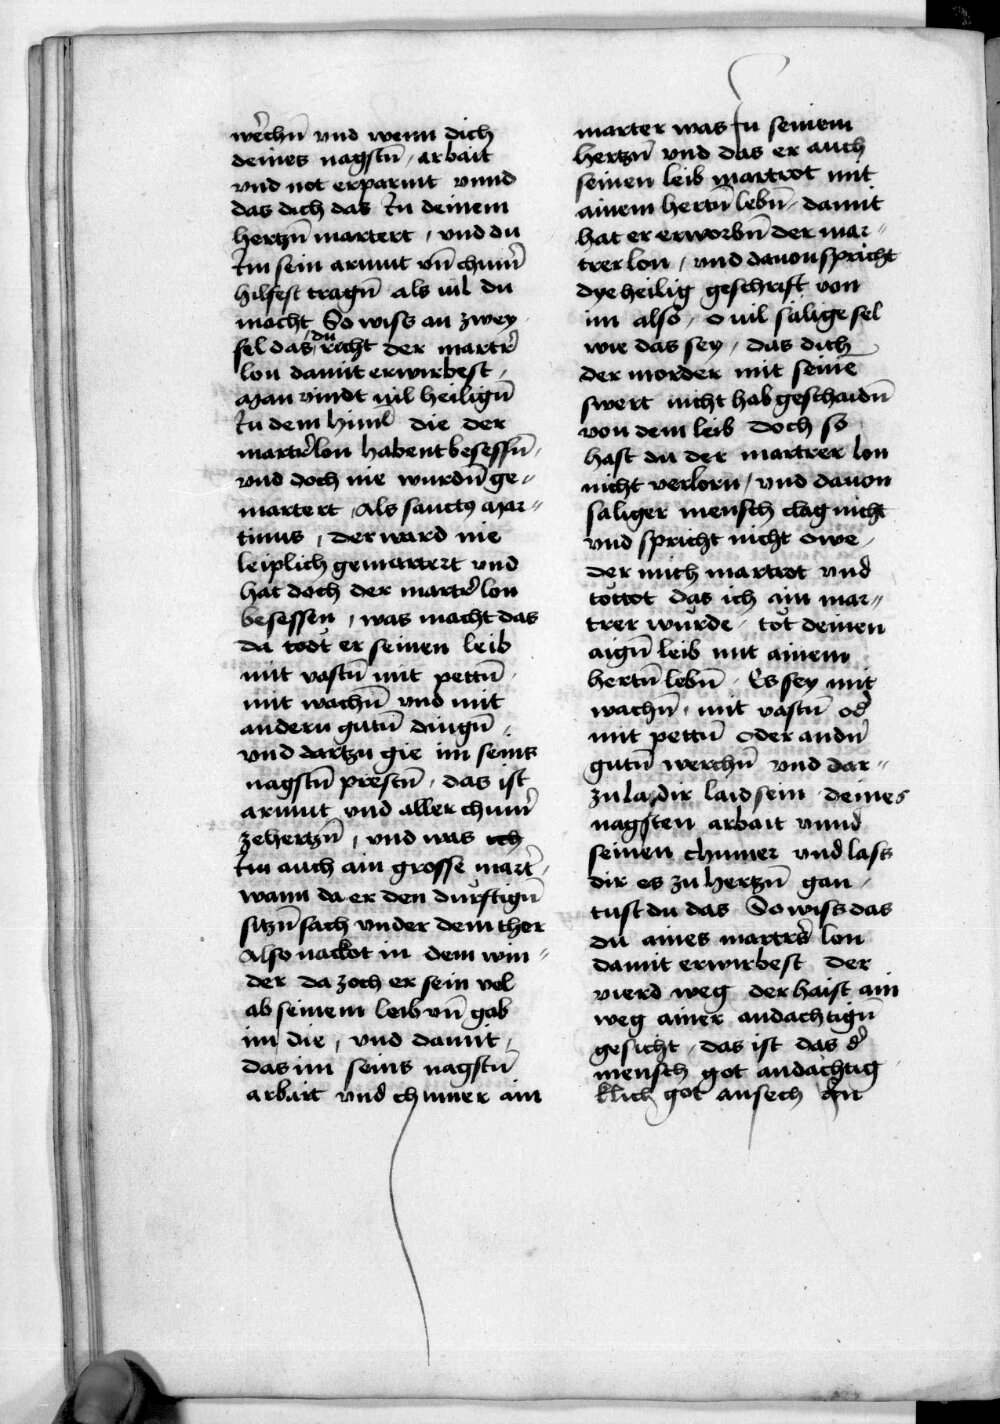 werchn̄ vnd wenn dich
deines nagstn̄ / arbait
vnd not erparmt vnnd
das dich das In deinem
hertzn̄ martert / vnd du
Im sein armut vn̄ chum̄
hilfest tragn̄ als uil du
macht So wiss an zwey
fel das du recht der martr̄
lon damit erwirbest /
Man vindt uil heilign̄
In dem himl̄ die der
martr̄lon habent besessn̄ /
vnd doch nie wurdn̄ ge〃
martert / Als sanctus Mar〃
tinus / der ward nie
leiplich gemartert vnd
hat doch der martr̄ lon
besessen / was macht das
da todt er seinen leib
mit vastn̄ mit pettn̄ /
mit wachn̄ vnd mit
andern gutn̄ dingn̄ /
vnd dartzu gie im seins
nagstn̄ prestn̄ / das ist
armut vnd aller chum̄
zehertzn̄ / vnd was ich
Im auch ain grosse mart̄ /
wann da er den durftign̄
sitzn̄ sach vnder dem ther
Also nackot in dem win〃
der da zoch er sein vel
ab seinem leib vn̄ gab
im die / vnd damit /
das im seins nagstn̄
arbait vnd chumer ain
marter was In seinem
hertzn̄ vnd das er auch
seinen leib martrot mit
ainem hertn̄ lebn̄ / damit
hat er erworbn̄ der mar〃
trer lon / vnd dauon spricht
dye heilig geschrift von
im also / o uil salige sel
wie das sey / das dich
der morder mit seinē
swert nicht hab geschaidn̄
von dem leib doch so
hast du der martrer lon
nicht verlorn / vnd dauon
saliger mensch clag nicht
vnd spricht nicht owe /
der mich martrot vnd
tottot das ich ain mar〃
trer wurde / tot deinen
aign̄ leib mit ainem
hertn̄ lebn̄ / Es sey mit
wachn̄ / mit vastn̄ od̄
mit pettn̄ oder andn̄
gutn̄ werchn̄ vnd dar〃
zu la dir laid sein deines
nagsten arbait vnnd
seinen chumer vnd lass
dir es zu hertzn̄ gan /
tust du das So wiss das
du aines martrs̄ lon
damit erwirbest der
vierd weg der haist ain
weg ainer andachtign̄
gesicht / das ist das d̄
mensch got andachtig
klich got ansech